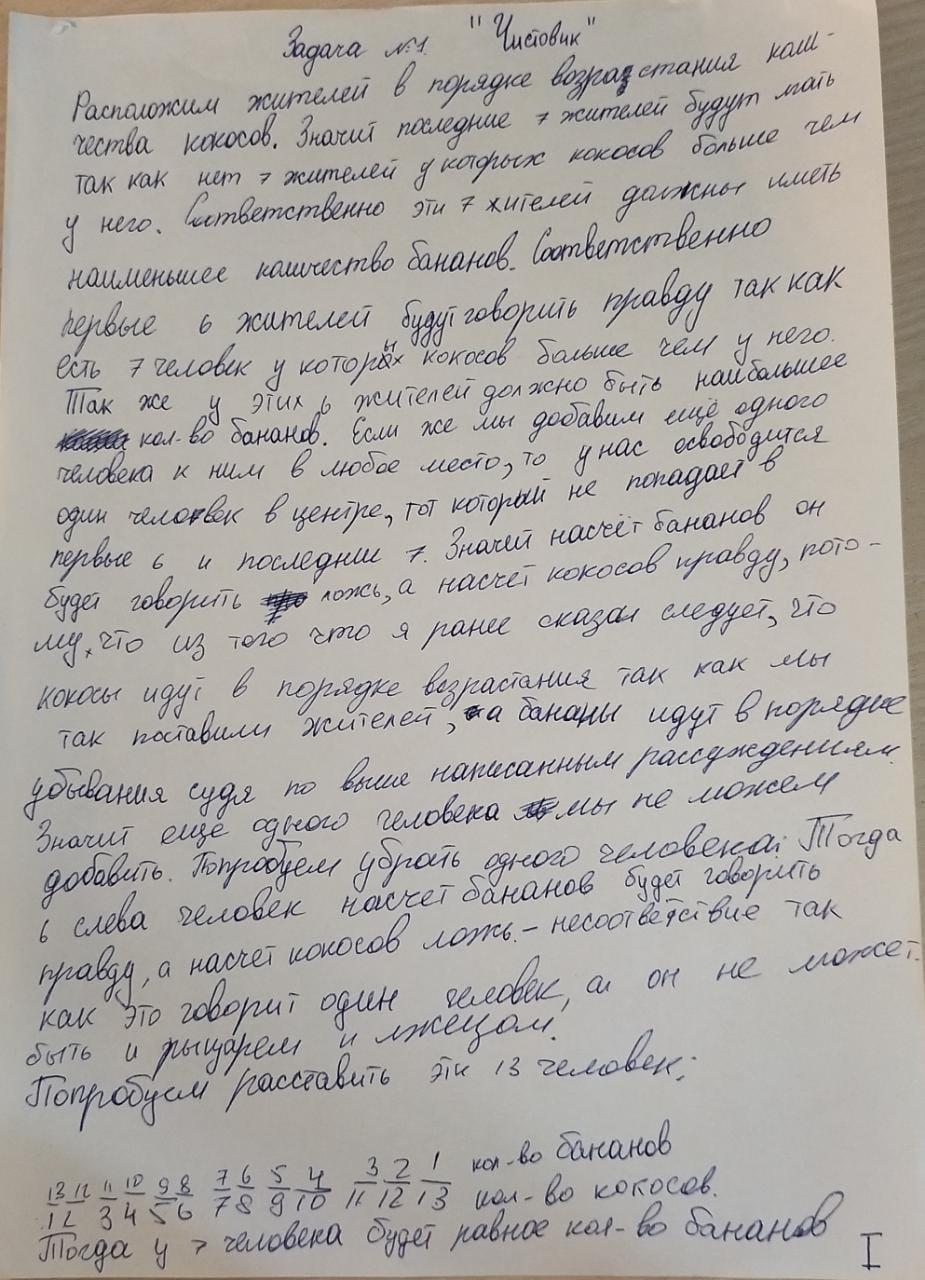 Задача №1. "Чистовик"
Расположим жителей в порядке возрастания коли-
чества кокосов. Значит последние 7 жителей будут лгать
так как нет 7 жителей у которых кокосов больше чем
у него. Соответственно эти 7 жителей должны иметь
наименьшее количество бананов. Соответственно
первые 6 жителей будут говорить правду так как
есть 7 человек у которых кокосов больше чем у него.
Так же у этих 6 жителей должно быть наибольшее
кол-во бананов. Если же мы добавим ещё одного
человека к ним в любое место, то у нас освободится
один человек в центре, тот который не попадает в
первые 6 и последнии 7. Значит насчёт бананов он
будет говорить ложь, а насчет кокосов правду, пото-
му, что из того что я ранее сказал следует, что
кокосы идут в порядке возрастания так как мы
так поставили жителей, а бананы идут в порядке
убывания судя по выше написанным рассуждениям.
Значит еще одного человека мы не можем
добавить. Попробуем убрать одного человека. Тогда
6 слева человек насчет бананов будет говорить
правду, а насчет кокосов ложь - несоответствие так
как это говорит один человек, а он не может
быть и рыцарем и лжецом.
Попробуем расставить эти 13 человек:
13 12 11 10 9 8 7 6 5 4 3 2 1 кол-во бананов
1 2 3 4 5 6 7 8 9 10 11 12 13 кол-во кокосов.
Тогда у 7 человека будет равное кол-во бананов
I